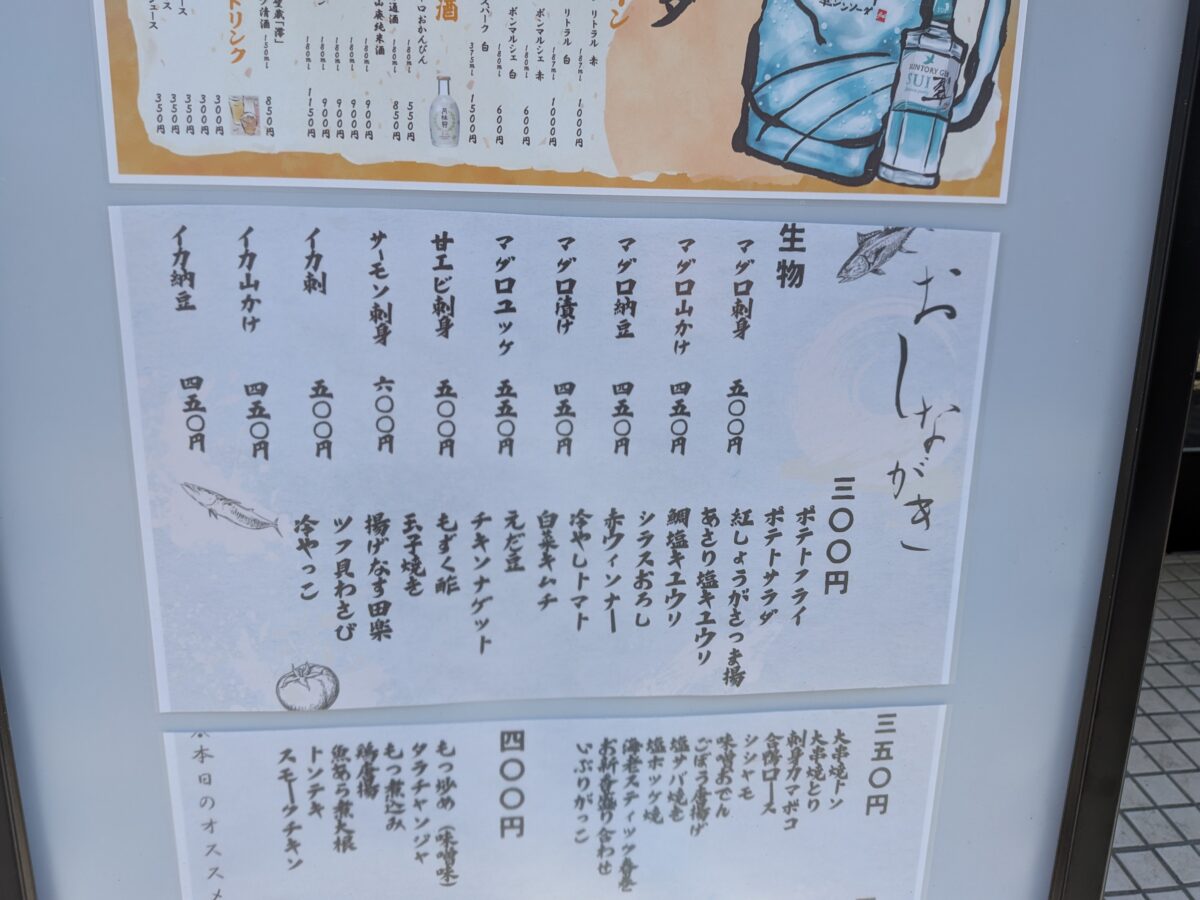 リトラル 赤 187ml 1000円
リトラル 白 187ml 1000円
ボンマルシェ 赤 180ml 600円
ボンマルシェ 白 180ml 600円
スパーク 白 375ml 1500円
酒
180ml 550円
180ml 850円
山廃純米酒 180ml 900円
180ml 900円
180ml 900円
180ml 1150円
ドリンク
「澪」 150ml 850円
300円
300円
350円
350円
350円
SUNTORY GIN
SUI
翠
おしながき
生物
マグロ刺身 五〇〇円
マグロ山かけ 四五〇円
マグロ納豆 四五〇円
マグロ漬け 四五〇円
マグロユッケ 五五〇円
甘エビ刺身 五〇〇円
サーモン刺身 六〇〇円
イカ刺 五〇〇円
イカ山かけ 四五〇円
イカ納豆 四五〇円
三〇〇円
ポテトフライ
ポテトサラダ
紅しょうがさつま揚
あさり塩キュウリ
鯛塩キュウリ
シラスおろし
赤ウィンナー
冷やしトマト
白菜キムチ
えだ豆
チキンナゲット
もずく酢
玉子焼き
揚げなす田楽
ツブ貝わさび
冷やっこ
三五〇円
大串焼トン
大串焼とり
刺身カマボコ
合鴨ロース
シシャモ
味噌おでん
ごぼう唐揚げ
塩サバ焼き
塩ホッケ焼
海老スティック春巻
お新香盛り合わせ
いぶりがっこ
四〇〇円
もつ炒め（味噌味）
タラチャンジャ
もつ煮込み
鶏唐揚
魚あら煮大根
トンテキ
スモークチキン
本日のオススメ